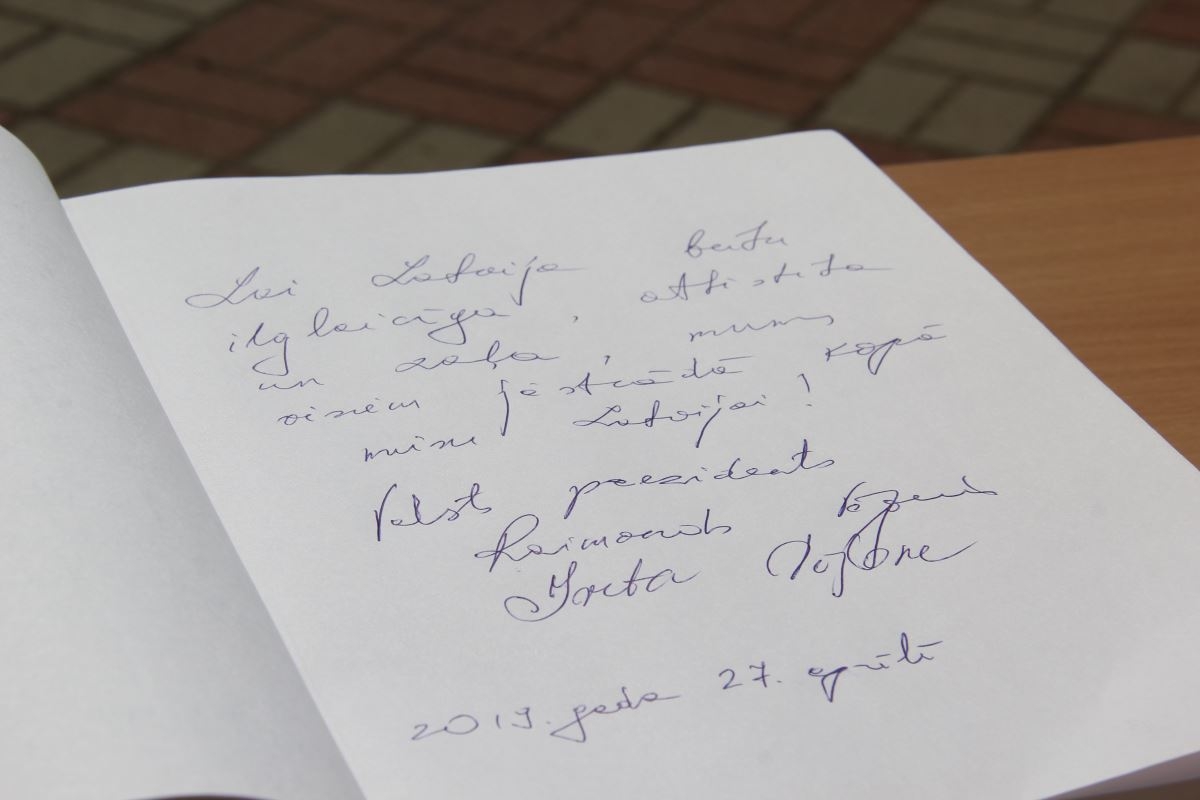 Lai Latvija būtu
ilglaicīga, attīstīta
un zaļa, mums
visiem jāstrādā kopā
mūsu Latvijai!
Valsts prezidents
Raimonds Vējonis
Iveta Vējone
2019. gada 27. aprīlī